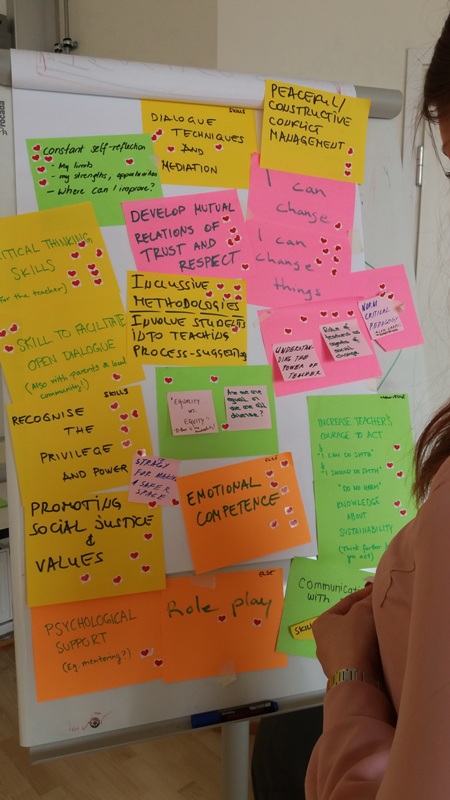 SKILLS
DIALOGUE
TECHNIQUES
AND
MEDIATION
PEACEFUL/
CONSTRUCTIVE
CONFLICT
MANAGEMENT
constant self-reflection
- My limits
- my strengths, opportunities
- Where can I improve?
I can
change
I can
change
things
DEVELOP MUTUAL
RELATIONS OF
TRUST AND
RESPECT
CRITICAL THINKING
SKILLS
(for the teacher)
SKILL TO FACILITATE
OPEN DIALOGUE
(Also with parents & local
community!)
INCLUSIVE
METHODOLOGIES
INVOLVE STUDENTS
INTO TEACHING
PROCESS-SUGGESTING
UNDERSTAN-
DING THE
POWER OF
TEACHER
Role of
teachers as
agents of
social
change
WORK
CRITICAL
PEDAGOGY
"Equality
vs.
Equity"
Are we all
equal or
are we all
diverse?
SKILLS
RECOGNISE
THE
PRIVILEGE
AND POWER
STRATEGY
FOR MAKING
A SAFER
SPACE
PROMOTING
SOCIAL JUSTICE
&
VALUES
ELSE
EMOTIONAL
COMPETENCE
INCREASE TEACHER'S
COURAGE TO ACT
"I CAN DO SMTH"
"I SHOULD DO SMTH"
"DO NO HARM"
KNOWLEDGE
ABOUT
SUSTAINABILITY
(Think further before
you act)
PSYCHOLOGICAL
SUPPORT
(Eg. mentoring?)
ELSE
Role play
Communicat
with
SKILL